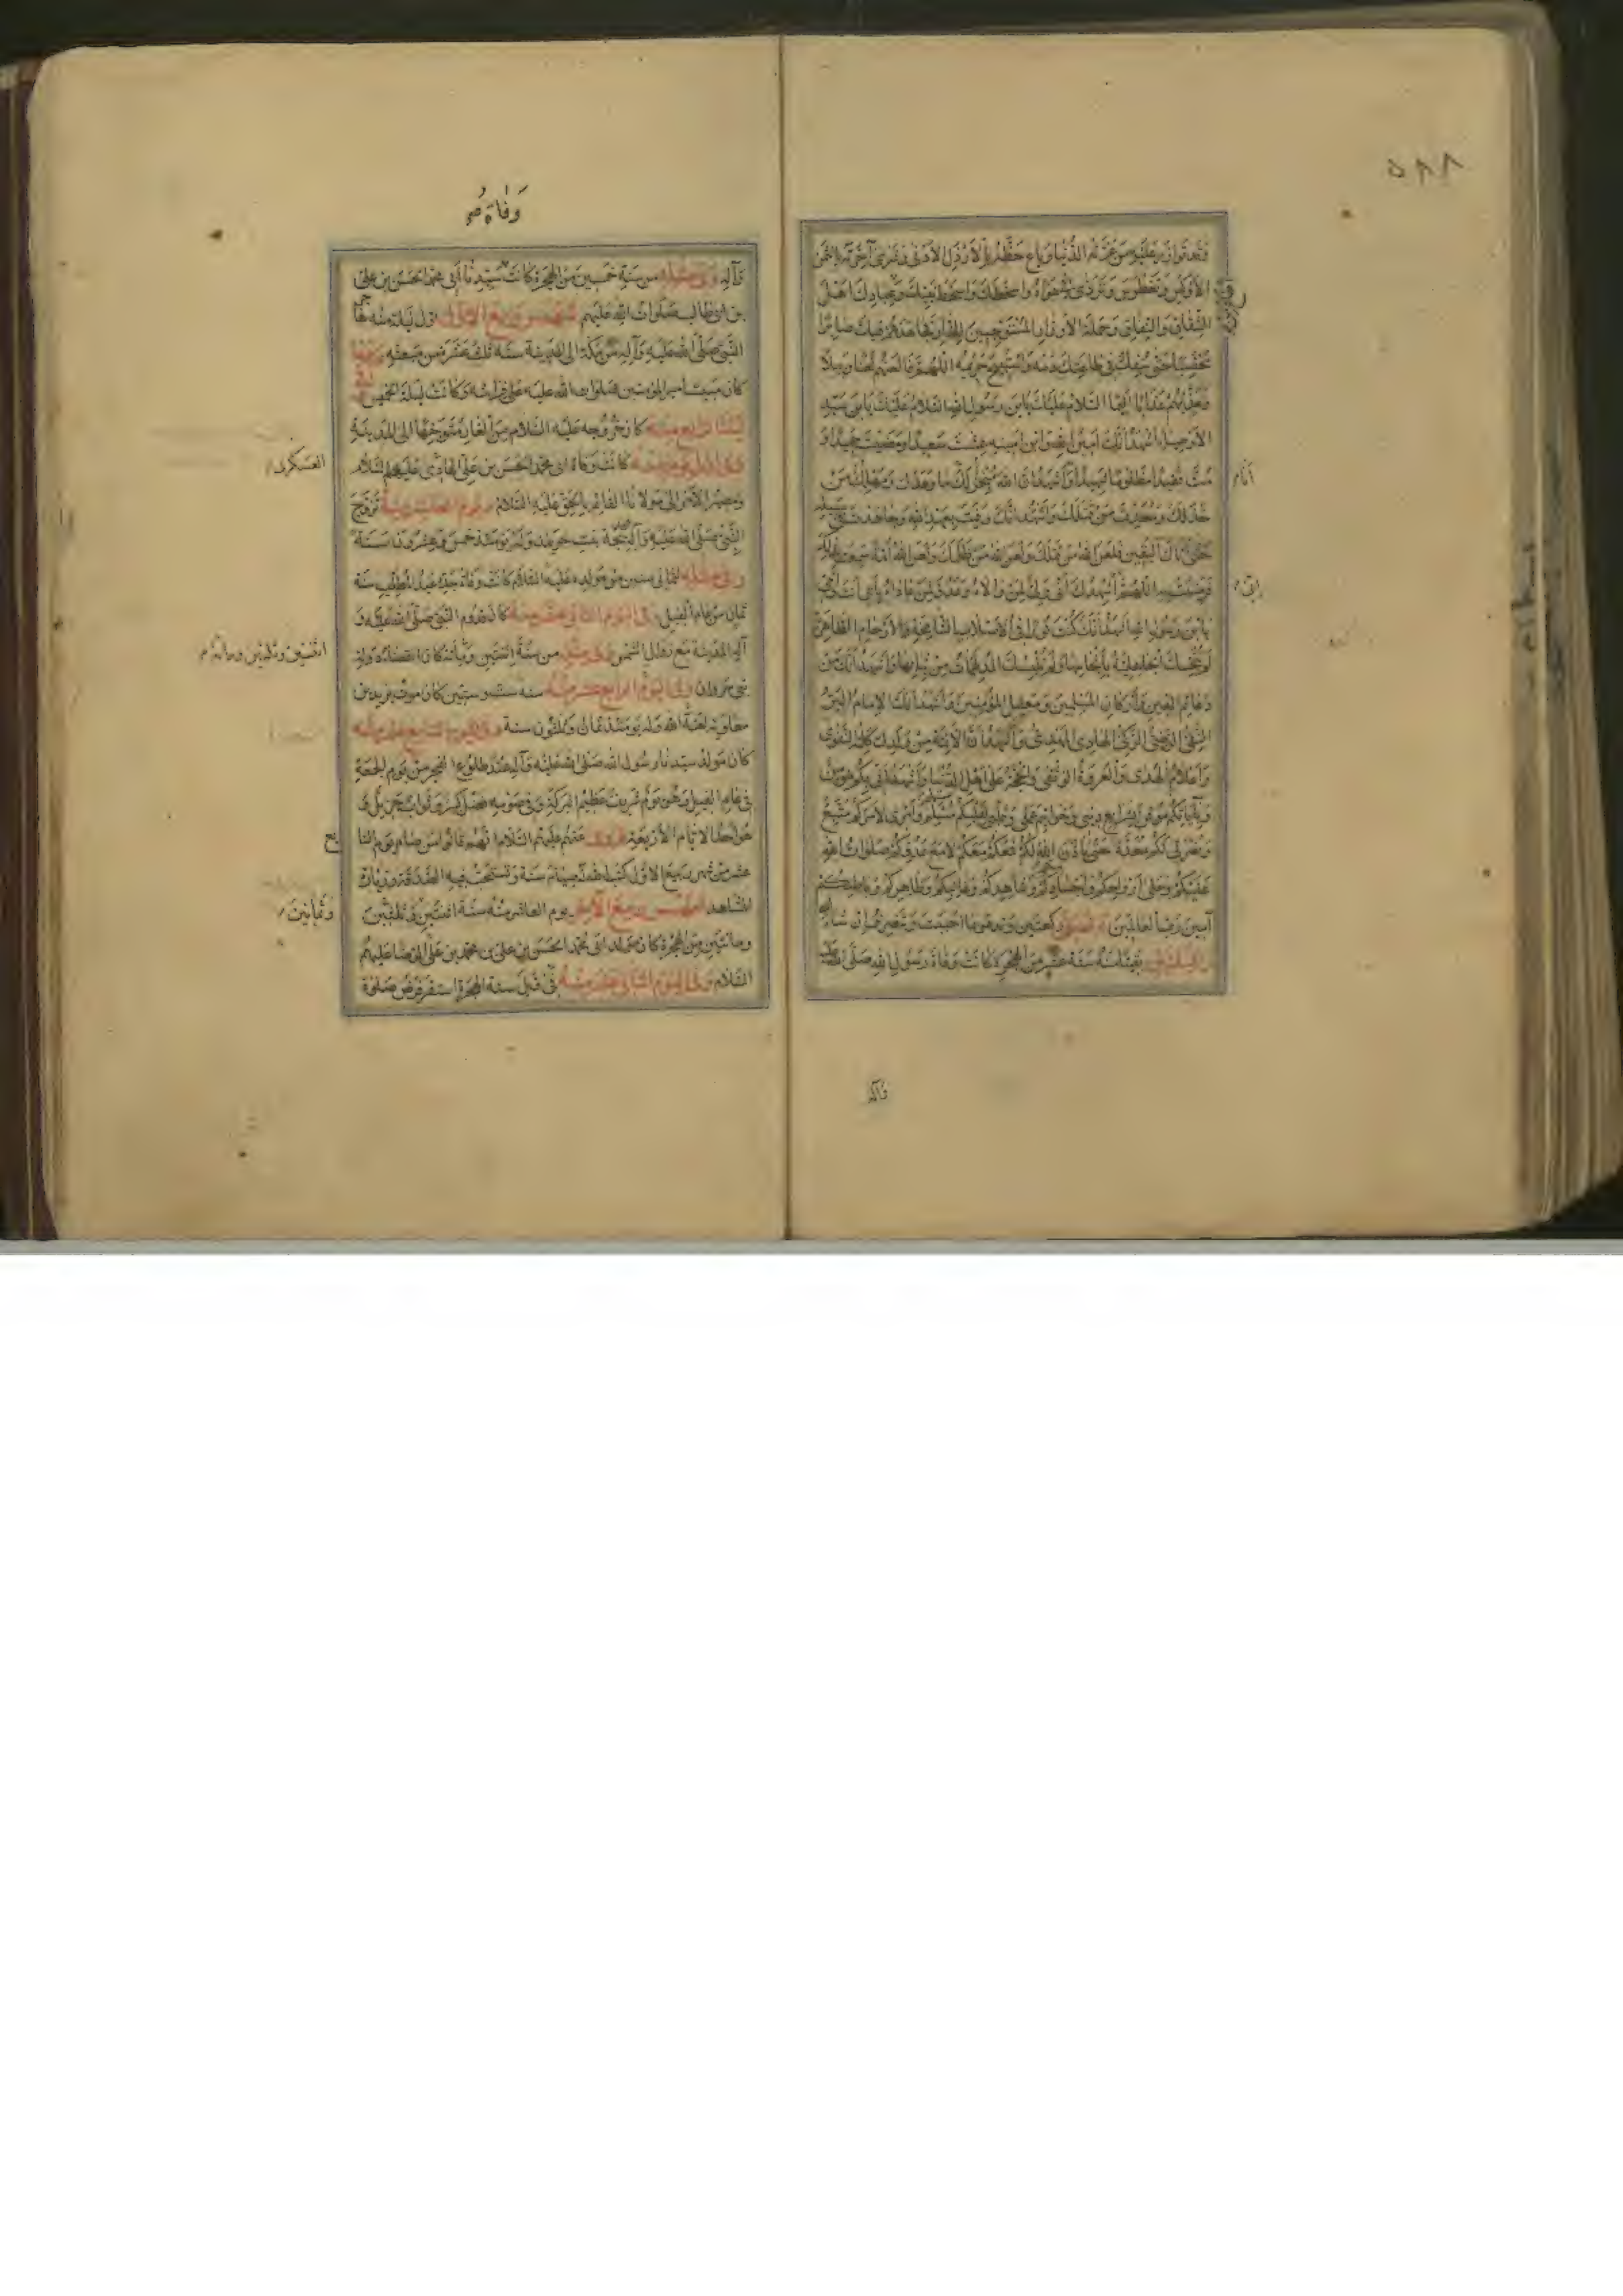 وقد توازر عليه من غرته الدنيا وباع حظه بالارذل الادنى وشرى آخرته بالثمن
الاوكس وتغطرس وتردى في هواه واسخطك واسخط نبيك واطاع من عبادك اهل
الشقاق والنفاق وحملة الاوزار المستوجبين للنار فجاهدهم فيك صابرا
محتسبا حتى سفك في طاعتك دمه واستبيح حريمه اللهم فالعنهم لعنا وبيلا
وعذبهم عذابا اليما السلام عليك يا بن رسول الله السلام عليك يا بن سيد
الاوصياء اشهد انك امين الله وابن امينه عشت سعيدا ومضيت حميدا و
مت فقيدا مظلوما شهيدا واشهد ان الله منجز لك ما وعدك ومهلك من
خذلك ومعذب من قتلك واشهد انك وفيت بعهد الله وجاهدت في سبيله
حتى اتاك اليقين فلعن الله من قتلك ولعن الله من ظلمك ولعن الله امة سمعت بذلك
فرضيت به اللهم اني اشهدك اني ولي لمن والاه وعدو لمن عاداه بابي انت وامي
يا بن رسول الله اشهد انك كنت نورا في الاصلاب الشامخة والارحام الطاهرة
لم تنجسك الجاهلية بانجاسها ولم تلبسك المدلهمات من ثيابها واشهد انك من
دعائم الدين واركان المسلمين ومعقل المؤمنين واشهد انك الامام البر
التقي الرضي الزكي الهادي المهدي واشهد ان الائمة من ولدك كلمة التقوى
واعلام الهدى والعروة الوثقى والحجة على اهل الدنيا واشهد اني بكم مؤمن
وبايابكم موقن بشرايع ديني وخواتيم عملي وقلبي لقلبكم سلم وامري لامركم متبع
ونصرتي لكم معدة حتى ياذن الله لكم فمعكم معكم لا مع عدوكم صلوات الله
عليكم وعلى ارواحكم واجسادكم وشاهدكم وغائبكم وظاهركم وباطنكم
آمين رب العالمين ركعتين وتدعو بما احببت وتنصرف ان شاء الله
بقيتا منه سنة عشر من الهجرة كانت وفاة رسول الله صلى الله عليه
وآله
وفاة
وآله وفي مثله من سنة خمسين من الهجرة كانت سيدنا ابي محمد الحسن بن علي
بن ابي طالب صلوات الله عليهم شهر ربيع الاول اول ليلة منه هاجر
النبي صلى الله عليه وآله من مكة الى المدينة سنة ثلث عشرة من مبعثه وفيها
كان مبيت امير المؤمنين صلوات الله عليه على فراشه وكانت ليلة الخميس وفي
ليلة الرابع منه كان خروجه عليه السلام من الغار متوجها الى المدينة
كانت وفاة ابي محمد الحسن بن علي الهادي عليهم السلام
العسكري
ومصير الامر الى مولانا القائم بالحق عليه السلام ويوم العاشر منه تزوج
النبي صلى الله عليه وآله خديجة بنت خويلد وله يومئذ خمس وعشرون سنة
وفي مثله لثماني سنين من مولده عليه السلام كانت وفاة جده عبد المطلب سنة
ثمان من عام الفيل وفي اليوم الثاني عشر منه كان قدوم النبي صلى الله عليه و
آله المدينة مع زوال الشمس وفي مثله من سنة اثنتين وثلثين ومائة كان انقضاء دولة
بني مروان وفي اليوم الرابع عشر منه سنة ست وستين كان موت يزيد بن
معاوية لعنه الله وله يومئذ ثمان وثلثون سنة وفي اليوم السابع عشر منه
كان مولد سيدنا رسول الله صلى الله عليه وآله عند طلوع الفجر من يوم الجمعة
في عام الفيل وهو يوم شريف عظيم البركة وفي صومه فضل كثير وثواب جزيل و
هو احد الايام الاربعة فروي عنهم عليهم السلام انهم قالوا من صام يوم السابع
عشر من شهر ربيع الاول كتب الله له صيام سنة وتستحب فيه الصدقة وزيارة
المشاهد شهر ربيع الآخر يوم العاشر منه سنة اثنتين وثلثين
ومائتين من الهجرة كان مولد ابي محمد الحسن بن علي بن محمد بن علي الرضا عليهم
السلام وفي اليوم الثاني عشر منه في قبل سنة الهجرة استقر فرض صلوة